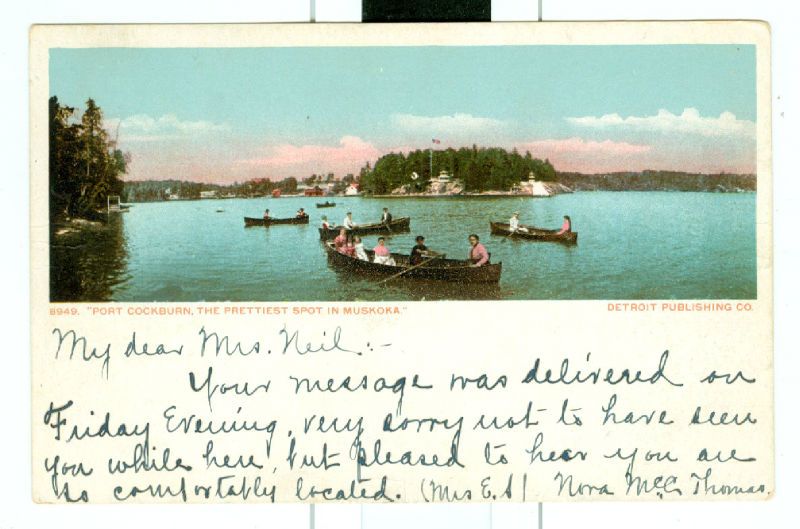 8949. "PORT COCKBURN, THE PRETTIEST SPOT IN MUSKOKA."
DETROIT PUBLISHING CO.
My dear Mrs. Neil:-
Your message was delivered on
Friday Evening, very sorry not to have seen
you while here, but pleased to hear you are
so comfortably located. (Mrs E. A) Nora McC. Thomas.